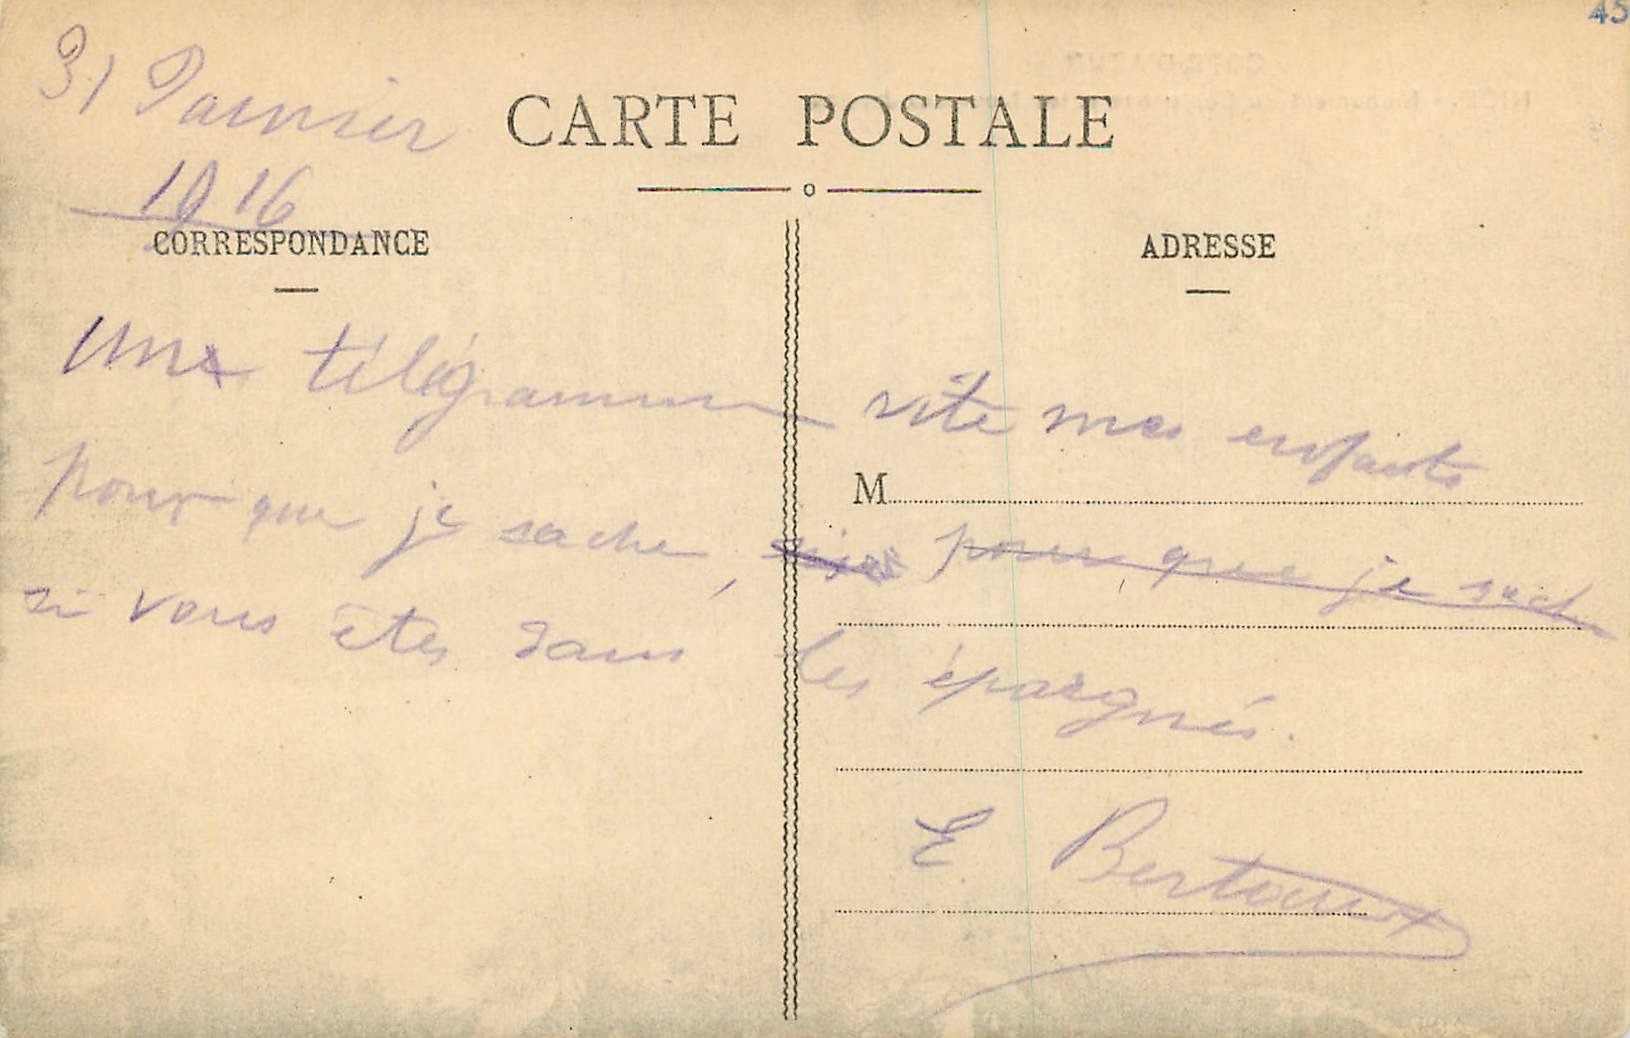 45
31 Janvier
CARTE POSTALE
1916
CORRESPONDANCE
ADRESSE
Une télégramme vite mes enfants
M
pour que je sache, pour que je sach
si vous etes dans les épargnés.
E. Bertoux